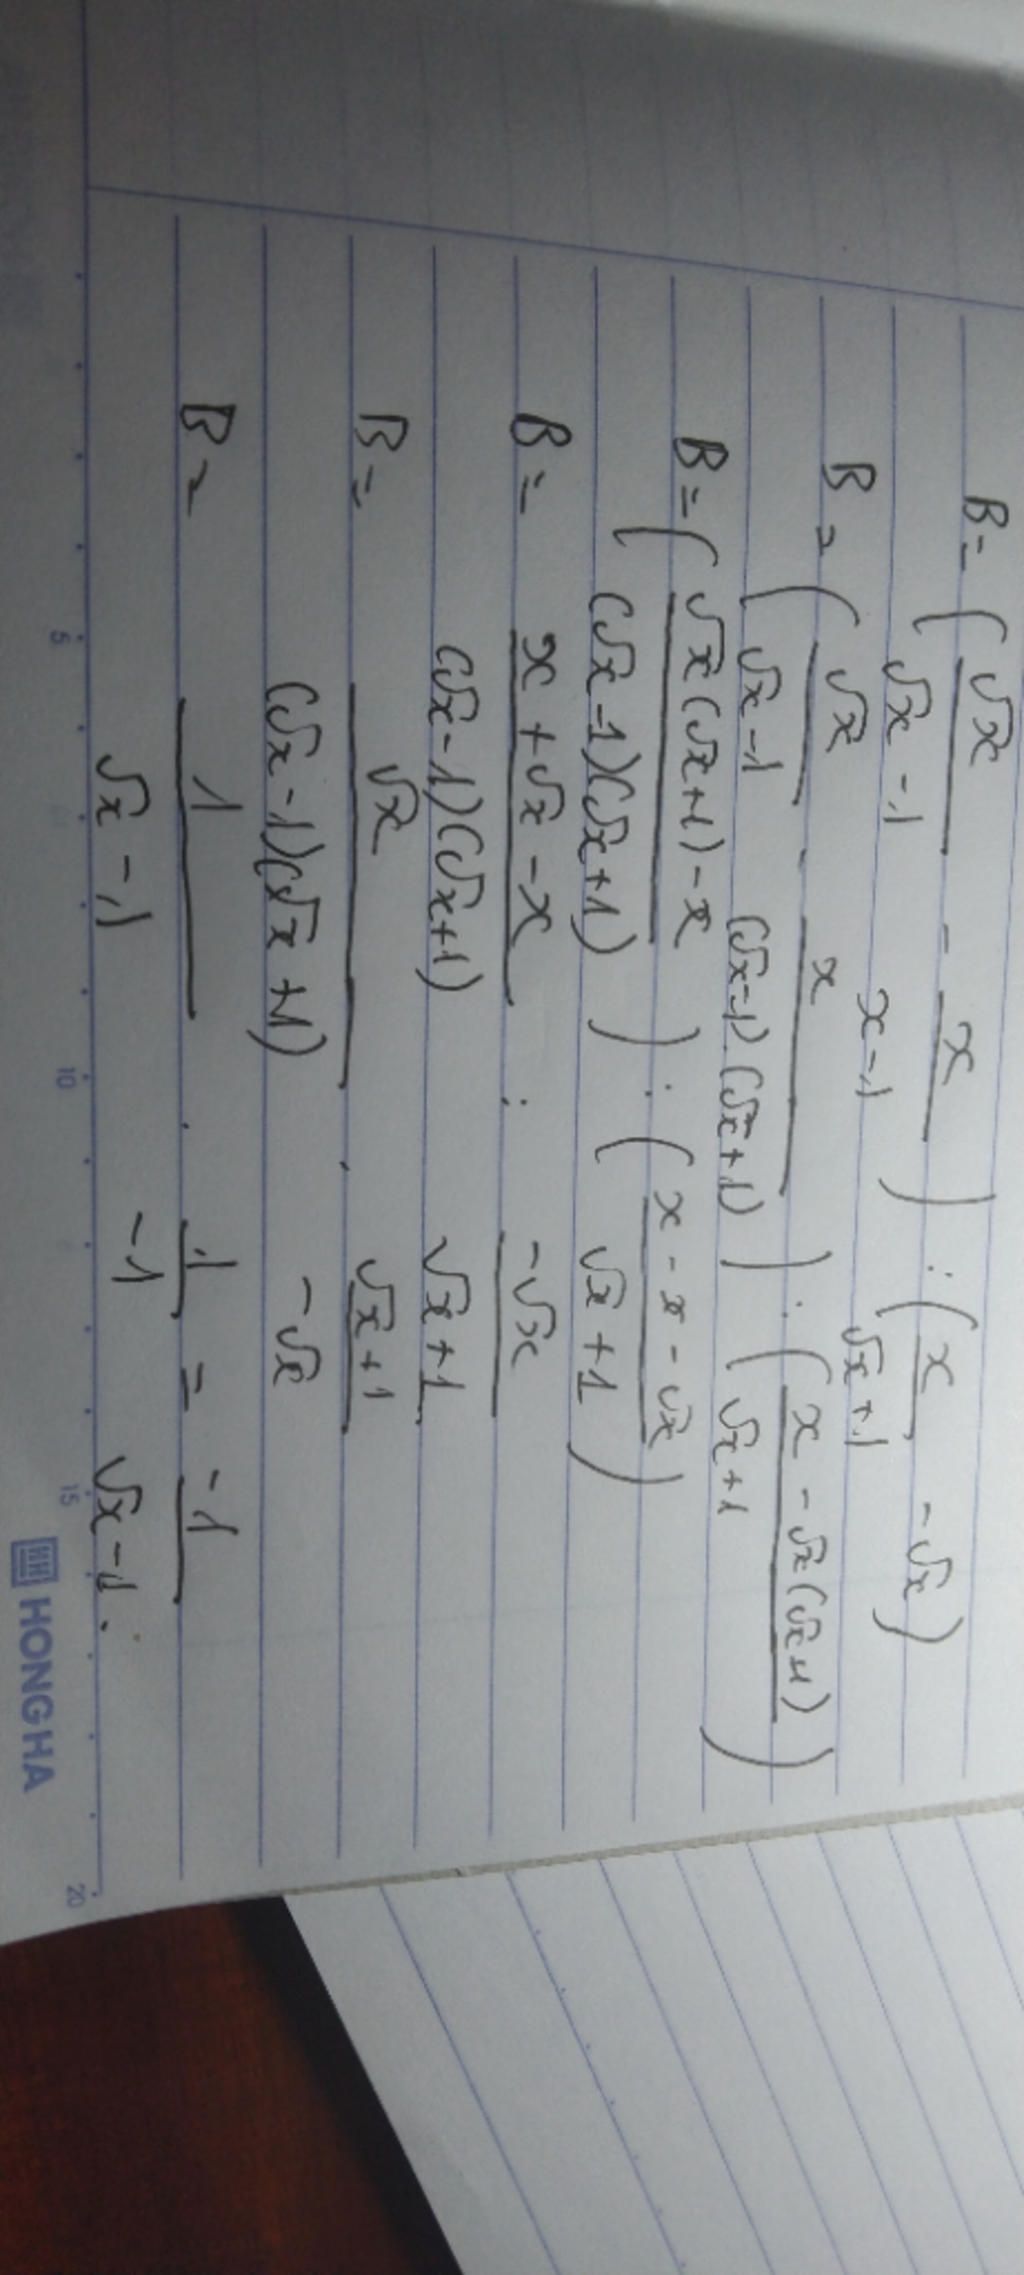 B = ( √x / √x - 1 - x / x - 1 ) : ( x / √x + 1 - √x )
B = ( √x / √x - 1 - x / (√x - 1).(√x + 1) ) : ( x - √x(√x+1) / √x + 1 )
B = ( √x(√x+1) - x / (√x - 1)(√x + 1) ) : ( x - x - √x / √x + 1 )
B = x + √x - x / (√x - 1)(√x + 1) : -√x / √x + 1
B = √x / (√x - 1)(√x + 1) . √x + 1 / -√x
B = 1 / √x - 1 . 1 / -1 = -1 / √x - 1 .
5 10 15 20
HH HONG HA